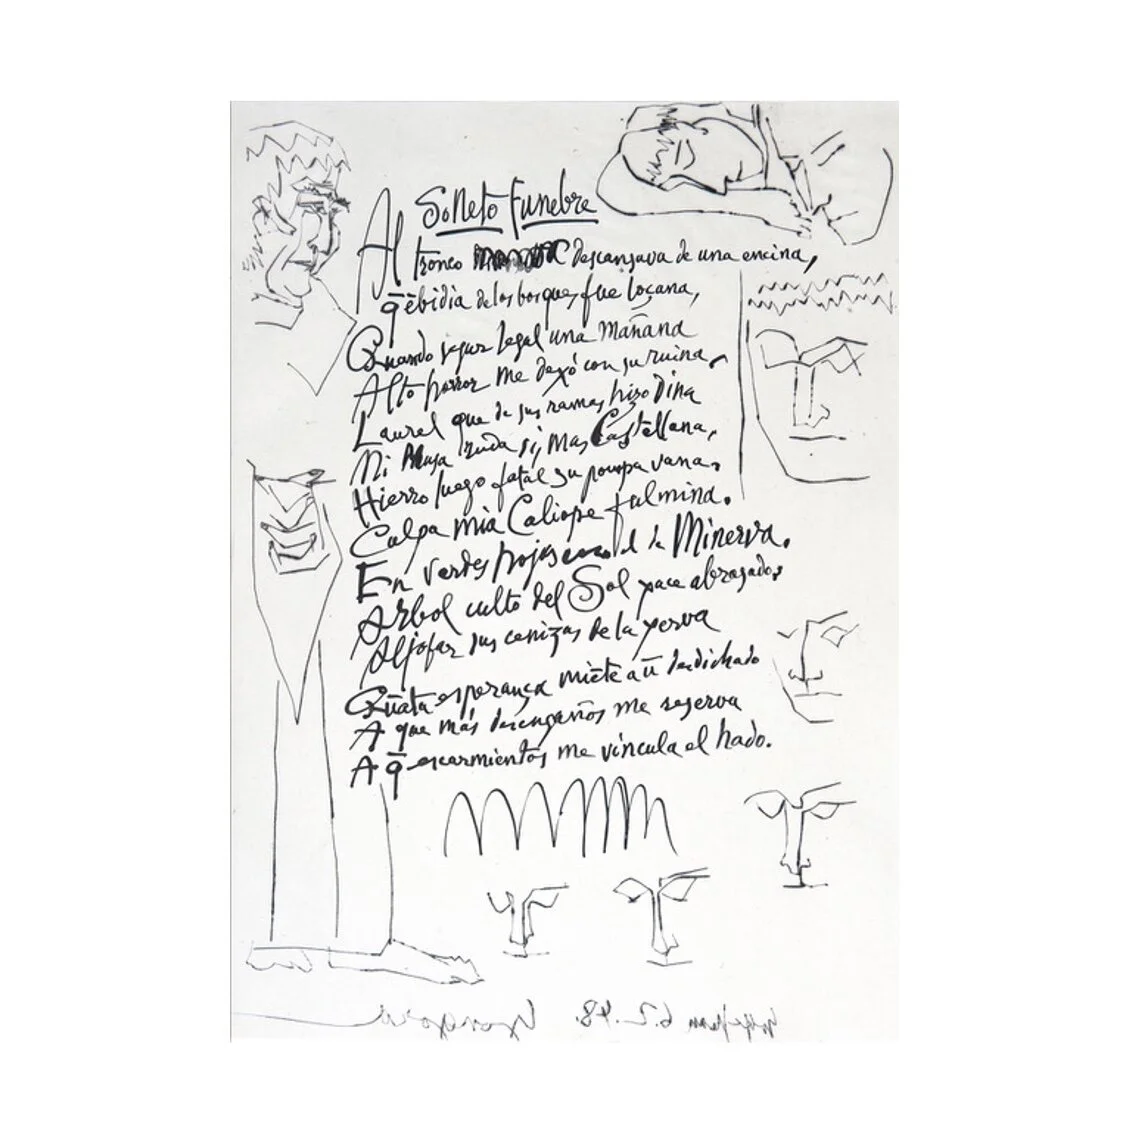 Soneto funebre
Al tronco descansava de una encina,
q̄ ēbidia de los bosques fue loçana,
Quando segur legal una mañana
Alto horror me dexó con su ruina,
Laurel que de sus ramas hizo Dina
Mi Musa ruda si, mas Castellana,
Hierro luego fatal su pompa vana.
Culpa mia Caliope fulmina.
En verdes hojas cano el de Minerva.
Arbol culto del Sol yace abrasado,
Aljofar sus cenizas de la yerva
Quāta esperança miēte a ū desdichado
A que más desengaños me reserva
A q̄ escarmientos me vincula el hado.
6.2.48. Gongora